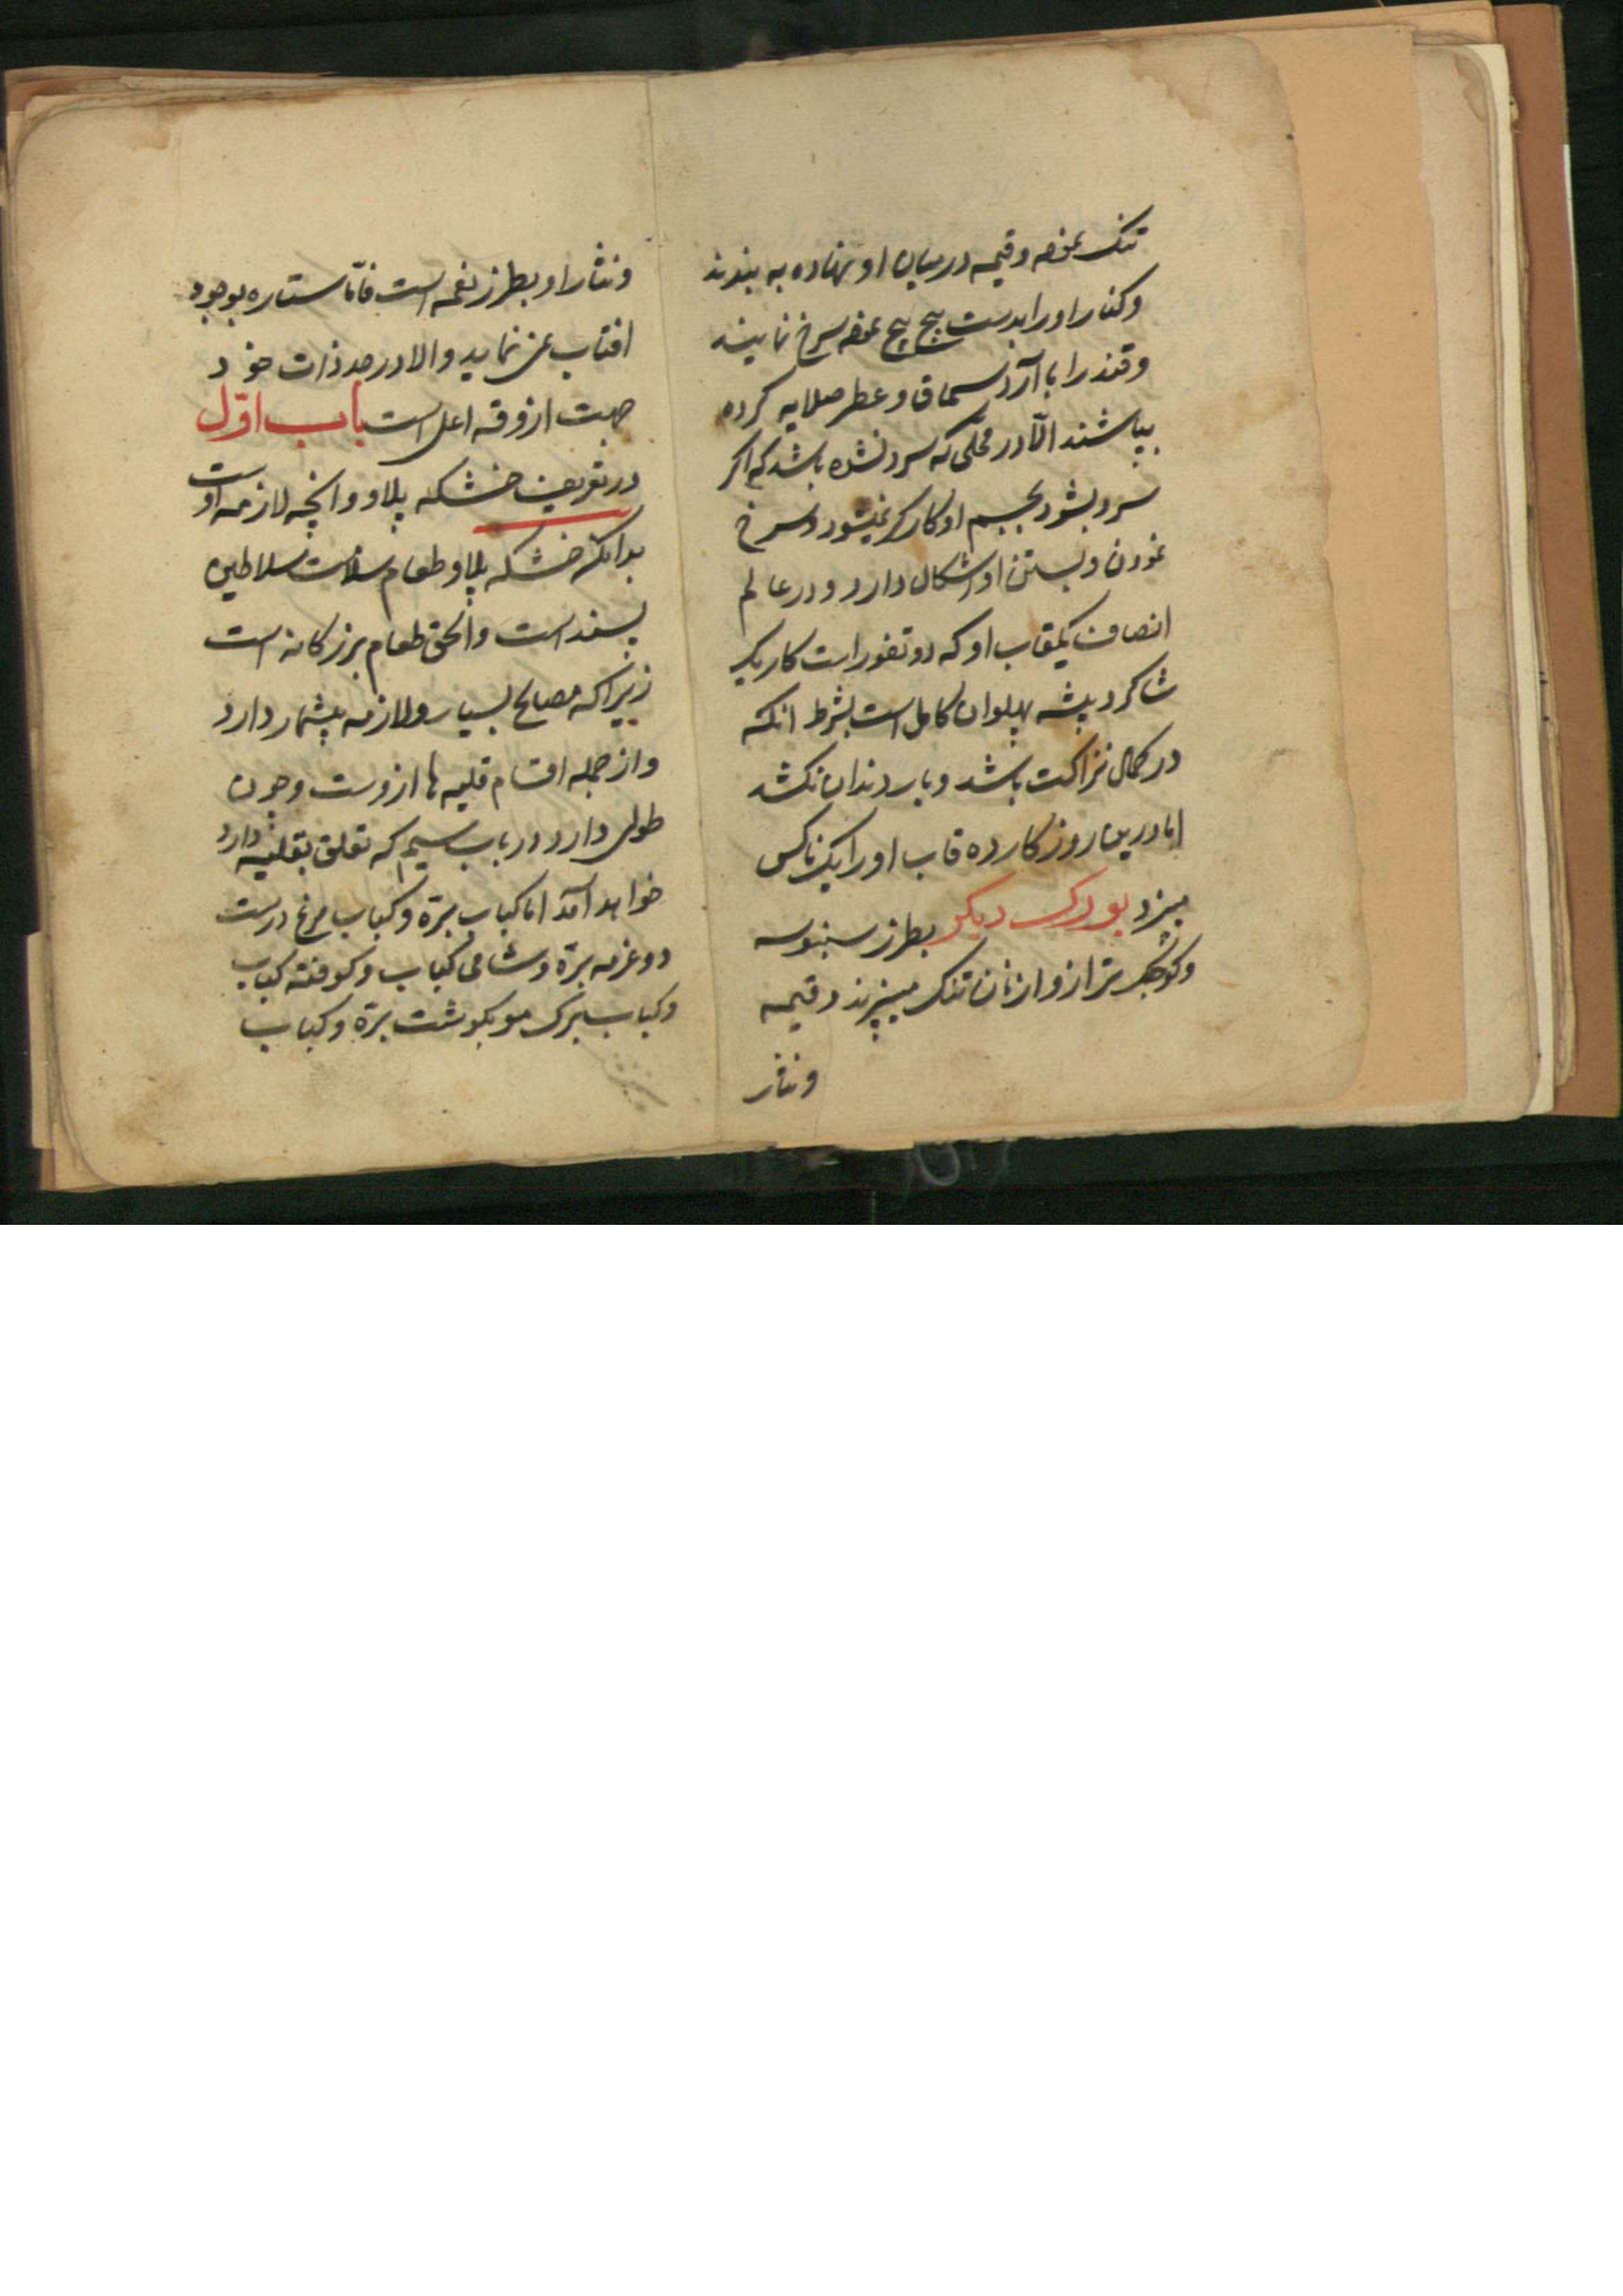 تنک نموده و قیمه در میان او نهاده به بندند
و کنار او را بدست پیچ پیچ نموده سرخ نمایند
و قند را با آرد سماق و عطر صلایه کرده
بپاشند الّا در محلی که سرد نشده باشد که اکر
سرد بشود بجسم او کارکر نمیشود و سرخ
نمودن و بستن او اشکال دارد و در عالم
انصاف یکقاب او که دو تقور است کار یک
شاکرد پیشه پهلوان کامل است بشرط انکه
در کمال نزاکت باشد و بار دندان نکشد
اما درین روزکار ده قاب او را یک ناکس
میپزد بورک دیکر بطرز سنبوسه
و کوچک تر ازو از نان تنک میپزند و قیمه
و نثار
و نثار او بطرز نغمه است فامّا ستاره بوجود
افتاب نمی نماید والا در حد ذات خود
جهت ازوقه اعلی است باب اوّل
در تعریف خشکه پلاو و انچه لازمه اوست
بدانکه خشکه پلاو طعام سلاست سلاطین
پسند است و الحق طعام بزرکانه است
زیرا که مصالح بسیار و لازمه بیشمار دارد
و از جمله اقسام قلیه ها ازوست و چون
طولی دارد در باب سیم که تعلق بقلیه دارد
خواهد آمد اما کباب برّه و کباب مرغ درست
دوغرمه برّه و شامی کباب و کوفته کباب
و کباب برک مو بکوشت برّه و کباب